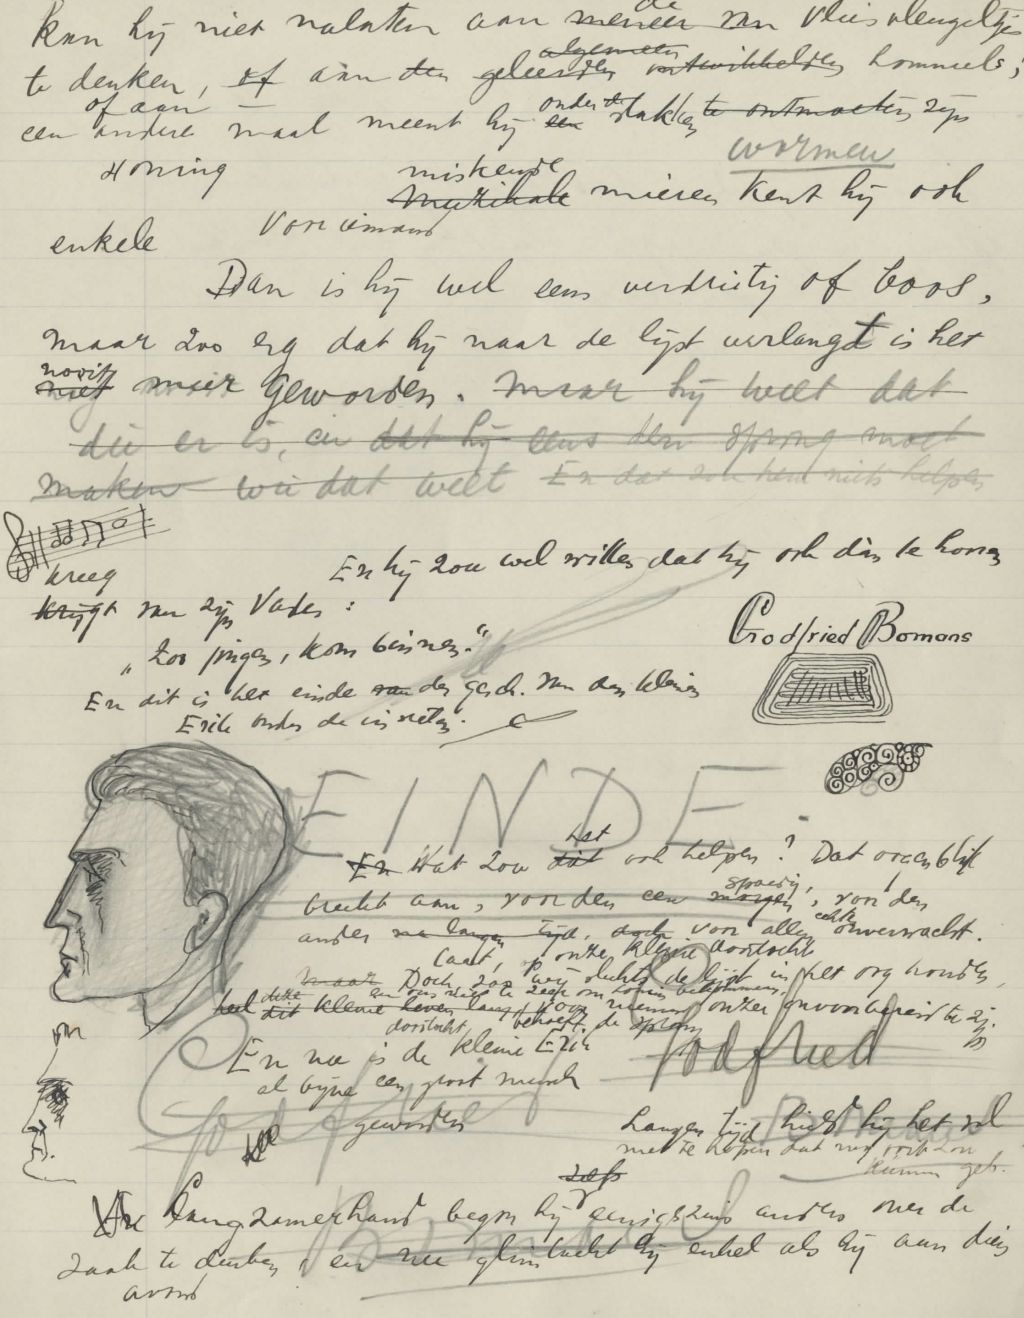 kan hij niet nalaten aan de meneer van Vliesvleugeltjes
te denken, of aan den algemeen geleerden ontwikkelden hommels;
of aan
een andere maal meent hij een onder de takken te ontmoeten zijn
wormen
Honing miskende
muzikale mieren kent hij ook
enkele Voor iemand
Dan is hij wel eens verdrietig of boos,
maar zoo erg dat hij naar de lijst verlangt is het
nooit
niet meer geworden. Maar hij weet dat
die er is, en dat hij eens den sprong moet
maken wie dat weet En dat zou hem niets helpen
kreeg
En hij zou wel willen dat hij ook dan te hooren
krijgt van zijn Vader:
„Zoo jongen, kom binnen.“
En dit is het einde van de gesch. van den kleinen
Erik onder de insecten.
Godfried Bomans
EINDE.
het
En Wat zou dat ook helpen? Dat oogenblik
spoedig,
breekt aan, voor den een morgen, voor den
ander na langen tijd, doch voor allen echter onverwacht.
Laat, onze kleine doortocht
maar Doch zoo wij slechts de lijst in het oog houden,
deze
dit kleine leven lang door onzer onvoorbereid te zijn
doortocht, behoeft de sprong
En nu is de kleine Erik
al bijna een groot mensch
geworden
Godfried
Godfried
Bomans
Langen tijd hield hij het vol
met te hopen dat nog ook zou
kunnen geb.
zelfs
Langzamerhand begon hij eenigszins anders over de
zaak te denken, en nu glimlacht hij enkel als hij aan dien
avond
Bomans